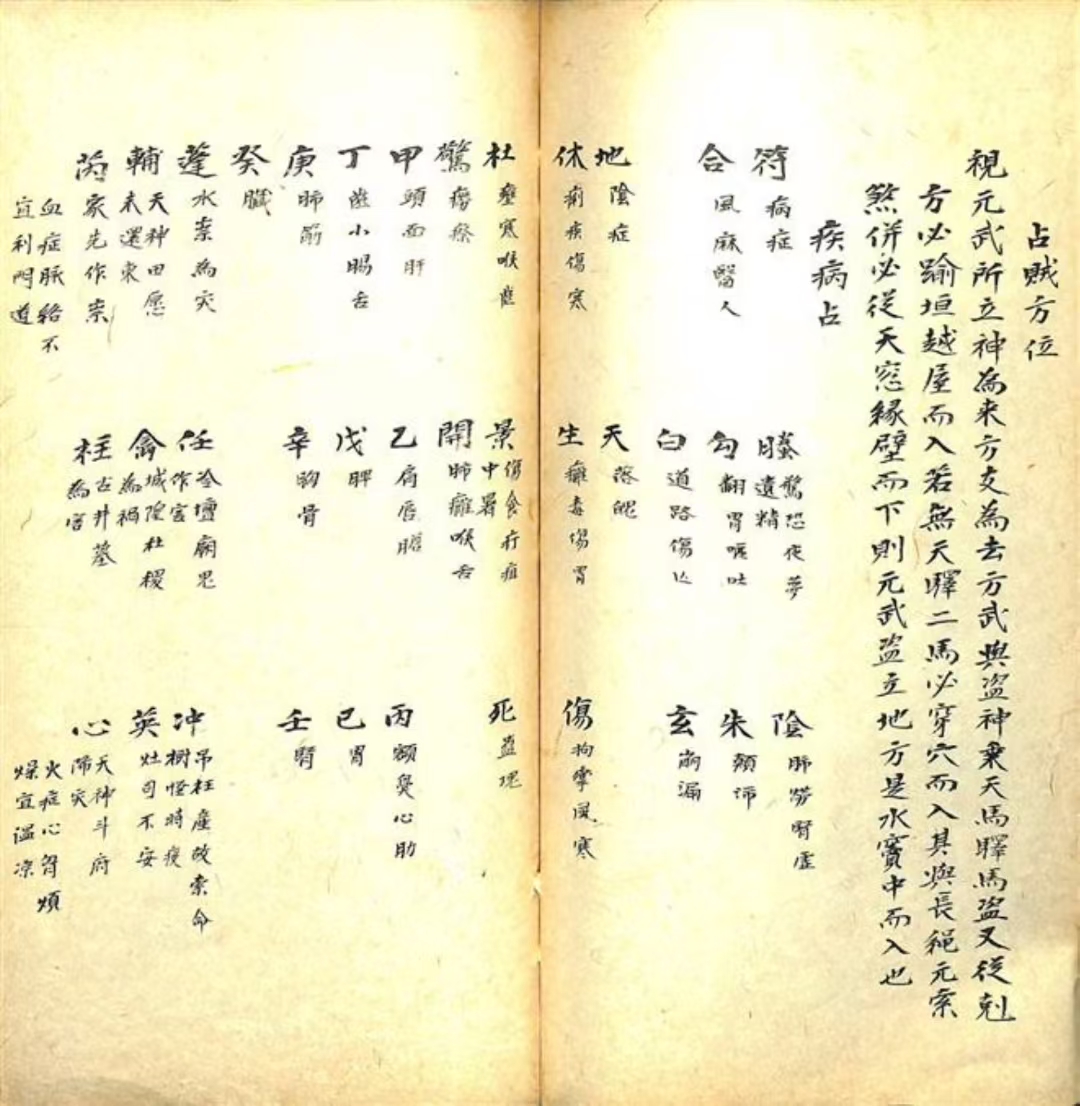 占賊方位
視元武所立神為来方支為去方武與盜神乗天馬驛馬盜又從剋
方必踰垣越屋而入若無天驛二馬必穿穴而入其與長繩元索
煞併必從天窓緣壁而下則元武盜立地方是水竇中而入也
疾病占
符 病症
螣 驚恐夜夢
遺精
陰 肺勞腎虛
合 風麻醫人
勾 翻胃嘔吐
朱 顛
白 道路傷
玄 崩漏
地 陰症
天 落魄
休 痢疾傷寒
生 癰毒傷胃
傷 拘攣風寒
杜 寒喉
景 傷食疔疽
中暑
死
驚 癆瘵
開 肺癰喉舌
甲 頭面肝
乙 肩唇膽
丙 額髮心肋
丁 齒小腸舌
戊 脾
己 胃
庚 肺筋
辛 胸骨
壬 腎
癸 臟
蓬 水祟為灾
任 冷壇廟鬼
作害
冲 吊枉產故索命
樹怪時瘦
輔 天神田愿
未還東
禽 城隍社稷
為禍
英 灶司不安
芮 家先作祟
柱 古井墓
為害
心 天神斗府
降灾
血症脈絡不
宜利門道
火症心胷煩
燥宜溫凉